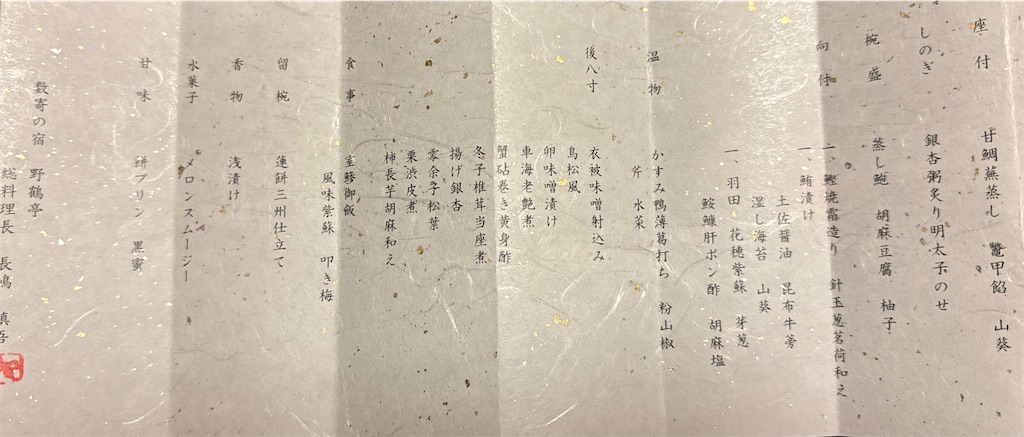 座付
甘鯛蕪蒸し 鼈甲餡 山葵
しのぎ
銀杏粥炙り明太子のせ
椀盛
蒸し鮑 胡麻豆腐 柚子
向付
一、鰹焼霜造り 針玉葱茗荷和え
一、鮪漬け
土佐醤油 昆布牛蒡
湿し海苔 山葵
一、羽田 花穂紫蘇 芽葱
鮟鱇肝ポン酢 胡麻塩
温物
かすみ鴨薄葛打ち 粉山椒
芹 水菜
後八寸
衣被味噌射込み
鳥松風
卵味噌漬け
車海老艶煮
蟹砧巻き黄身酢
冬子椎茸当座煮
揚げ銀杏
零余子松葉
栗渋皮煮
柿長芋胡麻和え
食事
室鯵御飯
風味紫蘇 叩き梅
留椀
蓮餅三州仕立て
香物
浅漬け
水菓子
メロンスムージー
甘味
餅プリン 黒蜜
数寄の宿 野鶴亭
総料理長 長嶋 慎吾